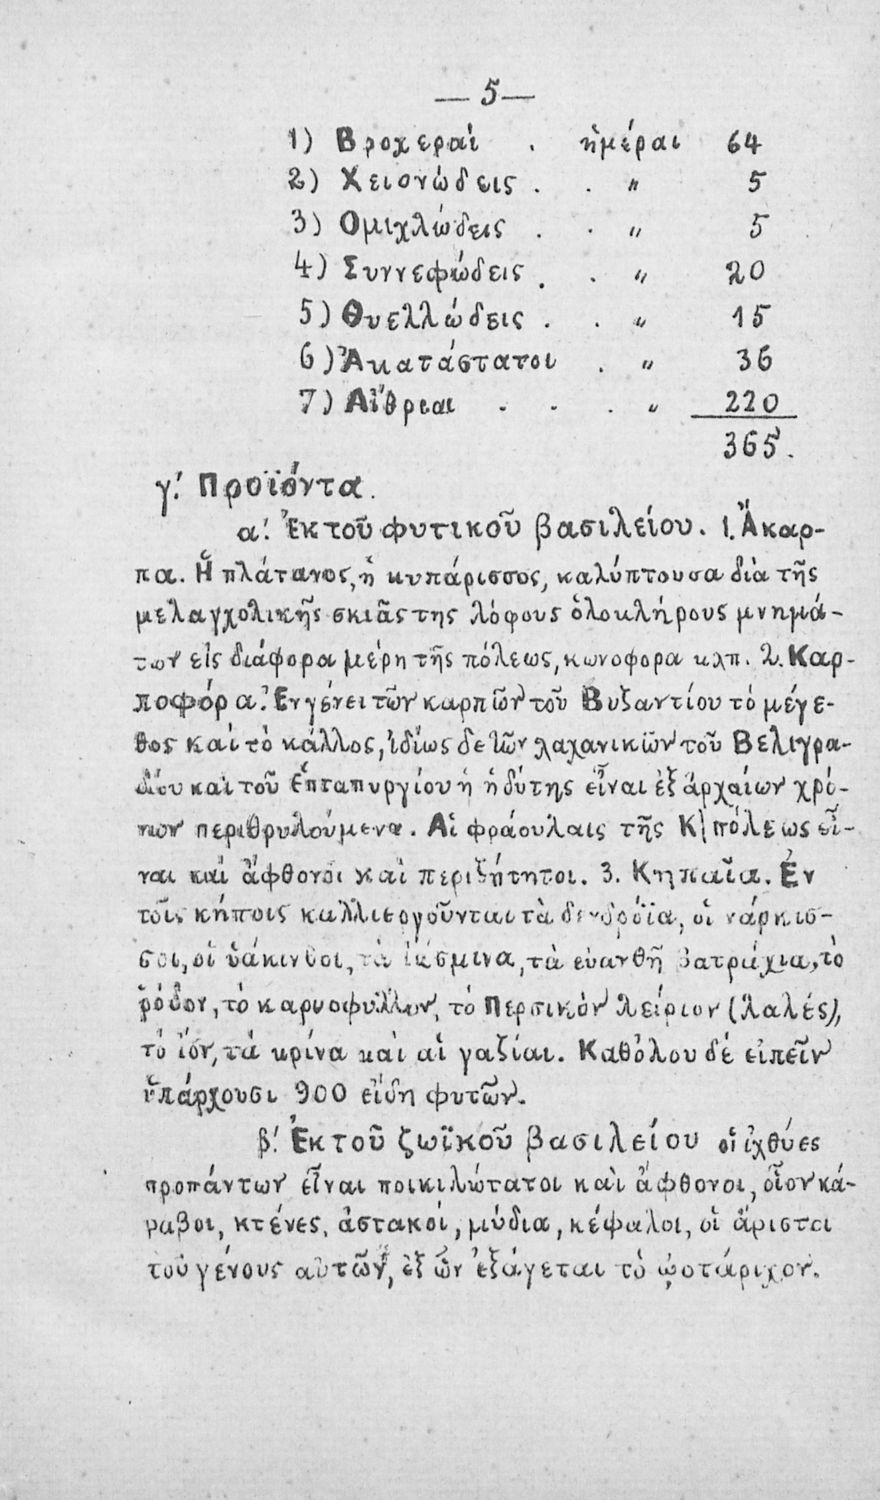 — 5 —
1) Βροχεραὶ . ἡμέραι 64
2) Χειονώδεις . . " 5
3) Ομιχλώδεις . . " 5
4) Συννεφώδεις . . " 20
5) Θυελλώδεις . . " 15
6) Ἀκατάστατοι . " 36
7) Αἴθριαι . . . " 220
365.
γ.' Προϊόντα.
α.' Ἐκ τοῦ φυτικοῦ βασιλείου. 1. Ἄκαρ-
πα. Ἡ πλάτανος, ἡ κυπάρισσος, καλύπτουσα διὰ τῆς
μελαγχολικῆς σκιᾶς της λόφους ὁλοκλήρους μνημά-
των εἰς διάφορα μέρη τῆς πόλεως, κωνοφορα κλπ. 2. Καρ-
ποφόρα. Ἐν γένει τῶν καρπῶν τοῦ Βυζαντίου τὸ μέγε-
θος καὶ τὸ κάλλος, ἰδίως δε τῶν λαχανικῶν τοῦ Βελιγρα-
δίου καὶ τοῦ Ἑπταπυργίου ἡ ἡδύτης εἶναι ἐξ ἀρχαίων χρό-
νων περιθρυλούμενα. Αἱ φράουλαις τῆς Κ/πόλεως εἶ-
ναι καὶ ἄφθονοι καὶ περιζήτητοι. 3. Κηπαῖα. Ἐν
τοῖς κήποις καλλιεργοῦνται τὰ δενδρόϊα, οἱ νάρκισ-
σοι, οἱ ὑάκινθοι, τὰ ἰάσμινα, τὰ εὐανθῆ βατράχια, τὸ
ῥόδον, τὸ καρυοφύλλον, τὸ Περσικὸν λείριον (λαλές),
τὸ ἴον, τὰ κρίνα καὶ αἱ γαζίαι. Καθόλου δέ εἰπεῖν
ὑπάρχουσι 900 εἴδη φυτῶν.
β.' Ἐκ τοῦ ζωϊκοῦ βασιλείου οἱ ἰχθύες
προπάντων εἶναι ποικιλώτατοι καὶ ἄφθονοι, οἷον κά-
ραβοι, κτένες, ἀστακοί, μύδια, κέφαλοι, οἱ ἄριστοι
τοῦ γένους αὐτῶν, ἐξ ὧν ἐξάγεται τὸ ᾠοτάριχον.